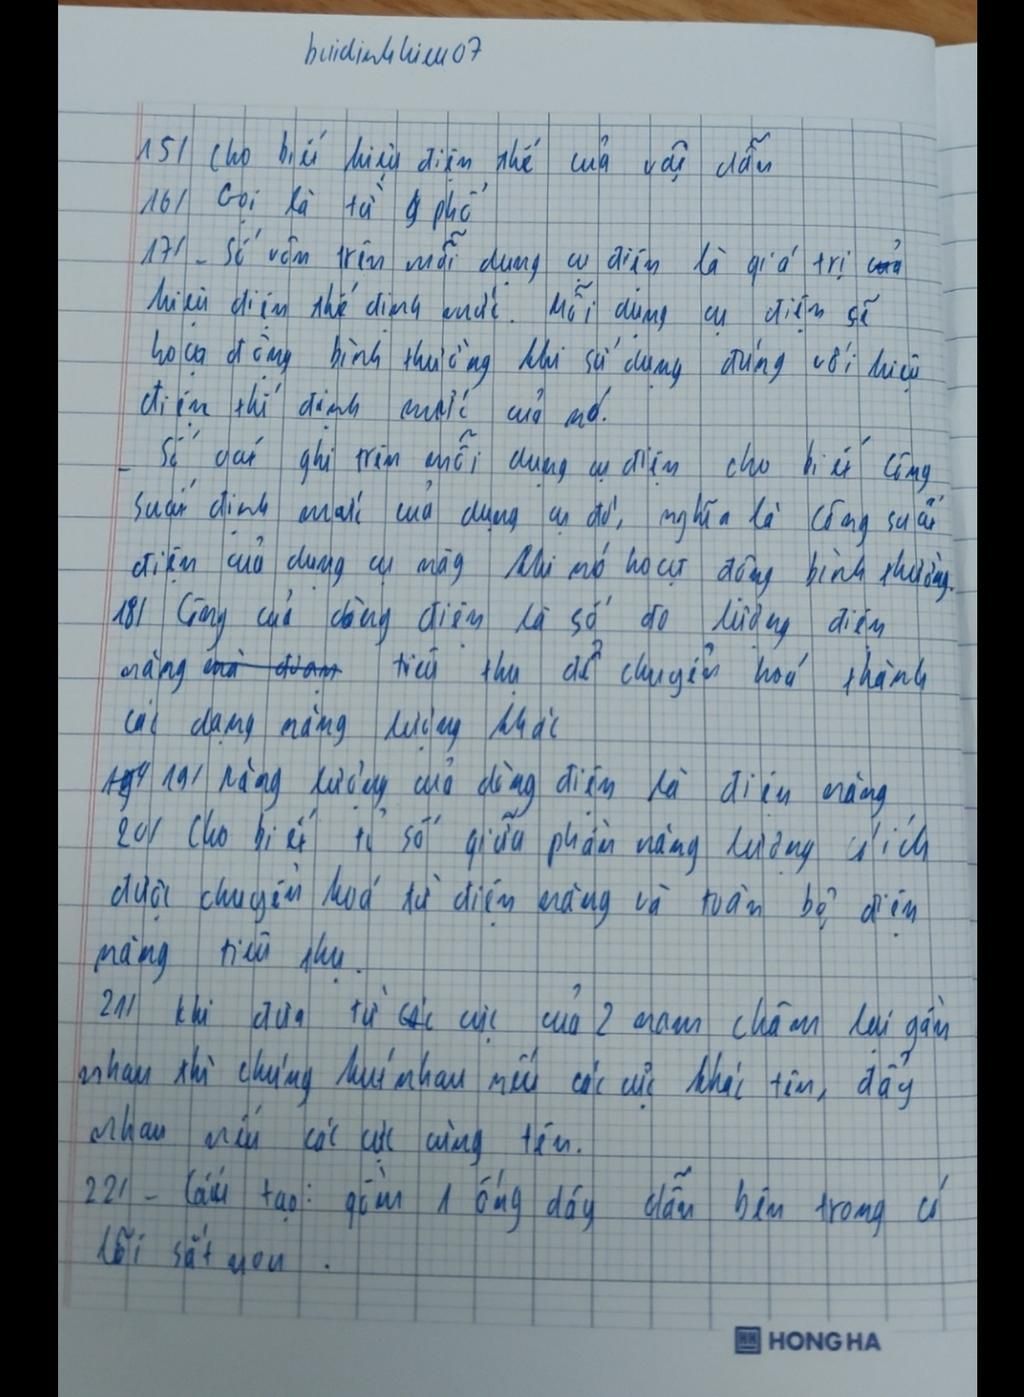 buidinhhieu07
15/ Cho biết hiệu điện thế của vật dẫn
16/ Gọi là từ phổ
17/ - Số vôn trên mỗi dụng cụ điện là giá trị của
hiệu điện thế định mức. Mỗi dụng cụ điện sẽ
hoạt động bình thường khi sử dụng đúng với hiệu
điện thế định mức của nó.
- Số oát ghi trên mỗi dụng cụ điện cho biết công
suất định mức của dụng cụ đó, nghĩa là công suất
điện của dụng cụ này khi nó hoạt động bình thường.
18/ Công của dòng điện là số đo lường điện
năng tiêu thụ để chuyển hoá thành
các dạng năng lượng khác
19/ Năng lượng của dòng điện là điện năng
20/ Cho biết tỉ số giữa phần năng lượng có ích
được chuyển hoá từ điện năng và toàn bộ điện
năng tiêu thụ.
21/ khi đưa từ các cực của 2 nam châm lại gần
nhau thì chúng hút nhau nếu các cực khác tên, đẩy
nhau nếu các cực cùng tên.
22/ - Cấu tạo: gồm 1 ống dây dẫn bên trong có
lõi sắt non.
HONG HA